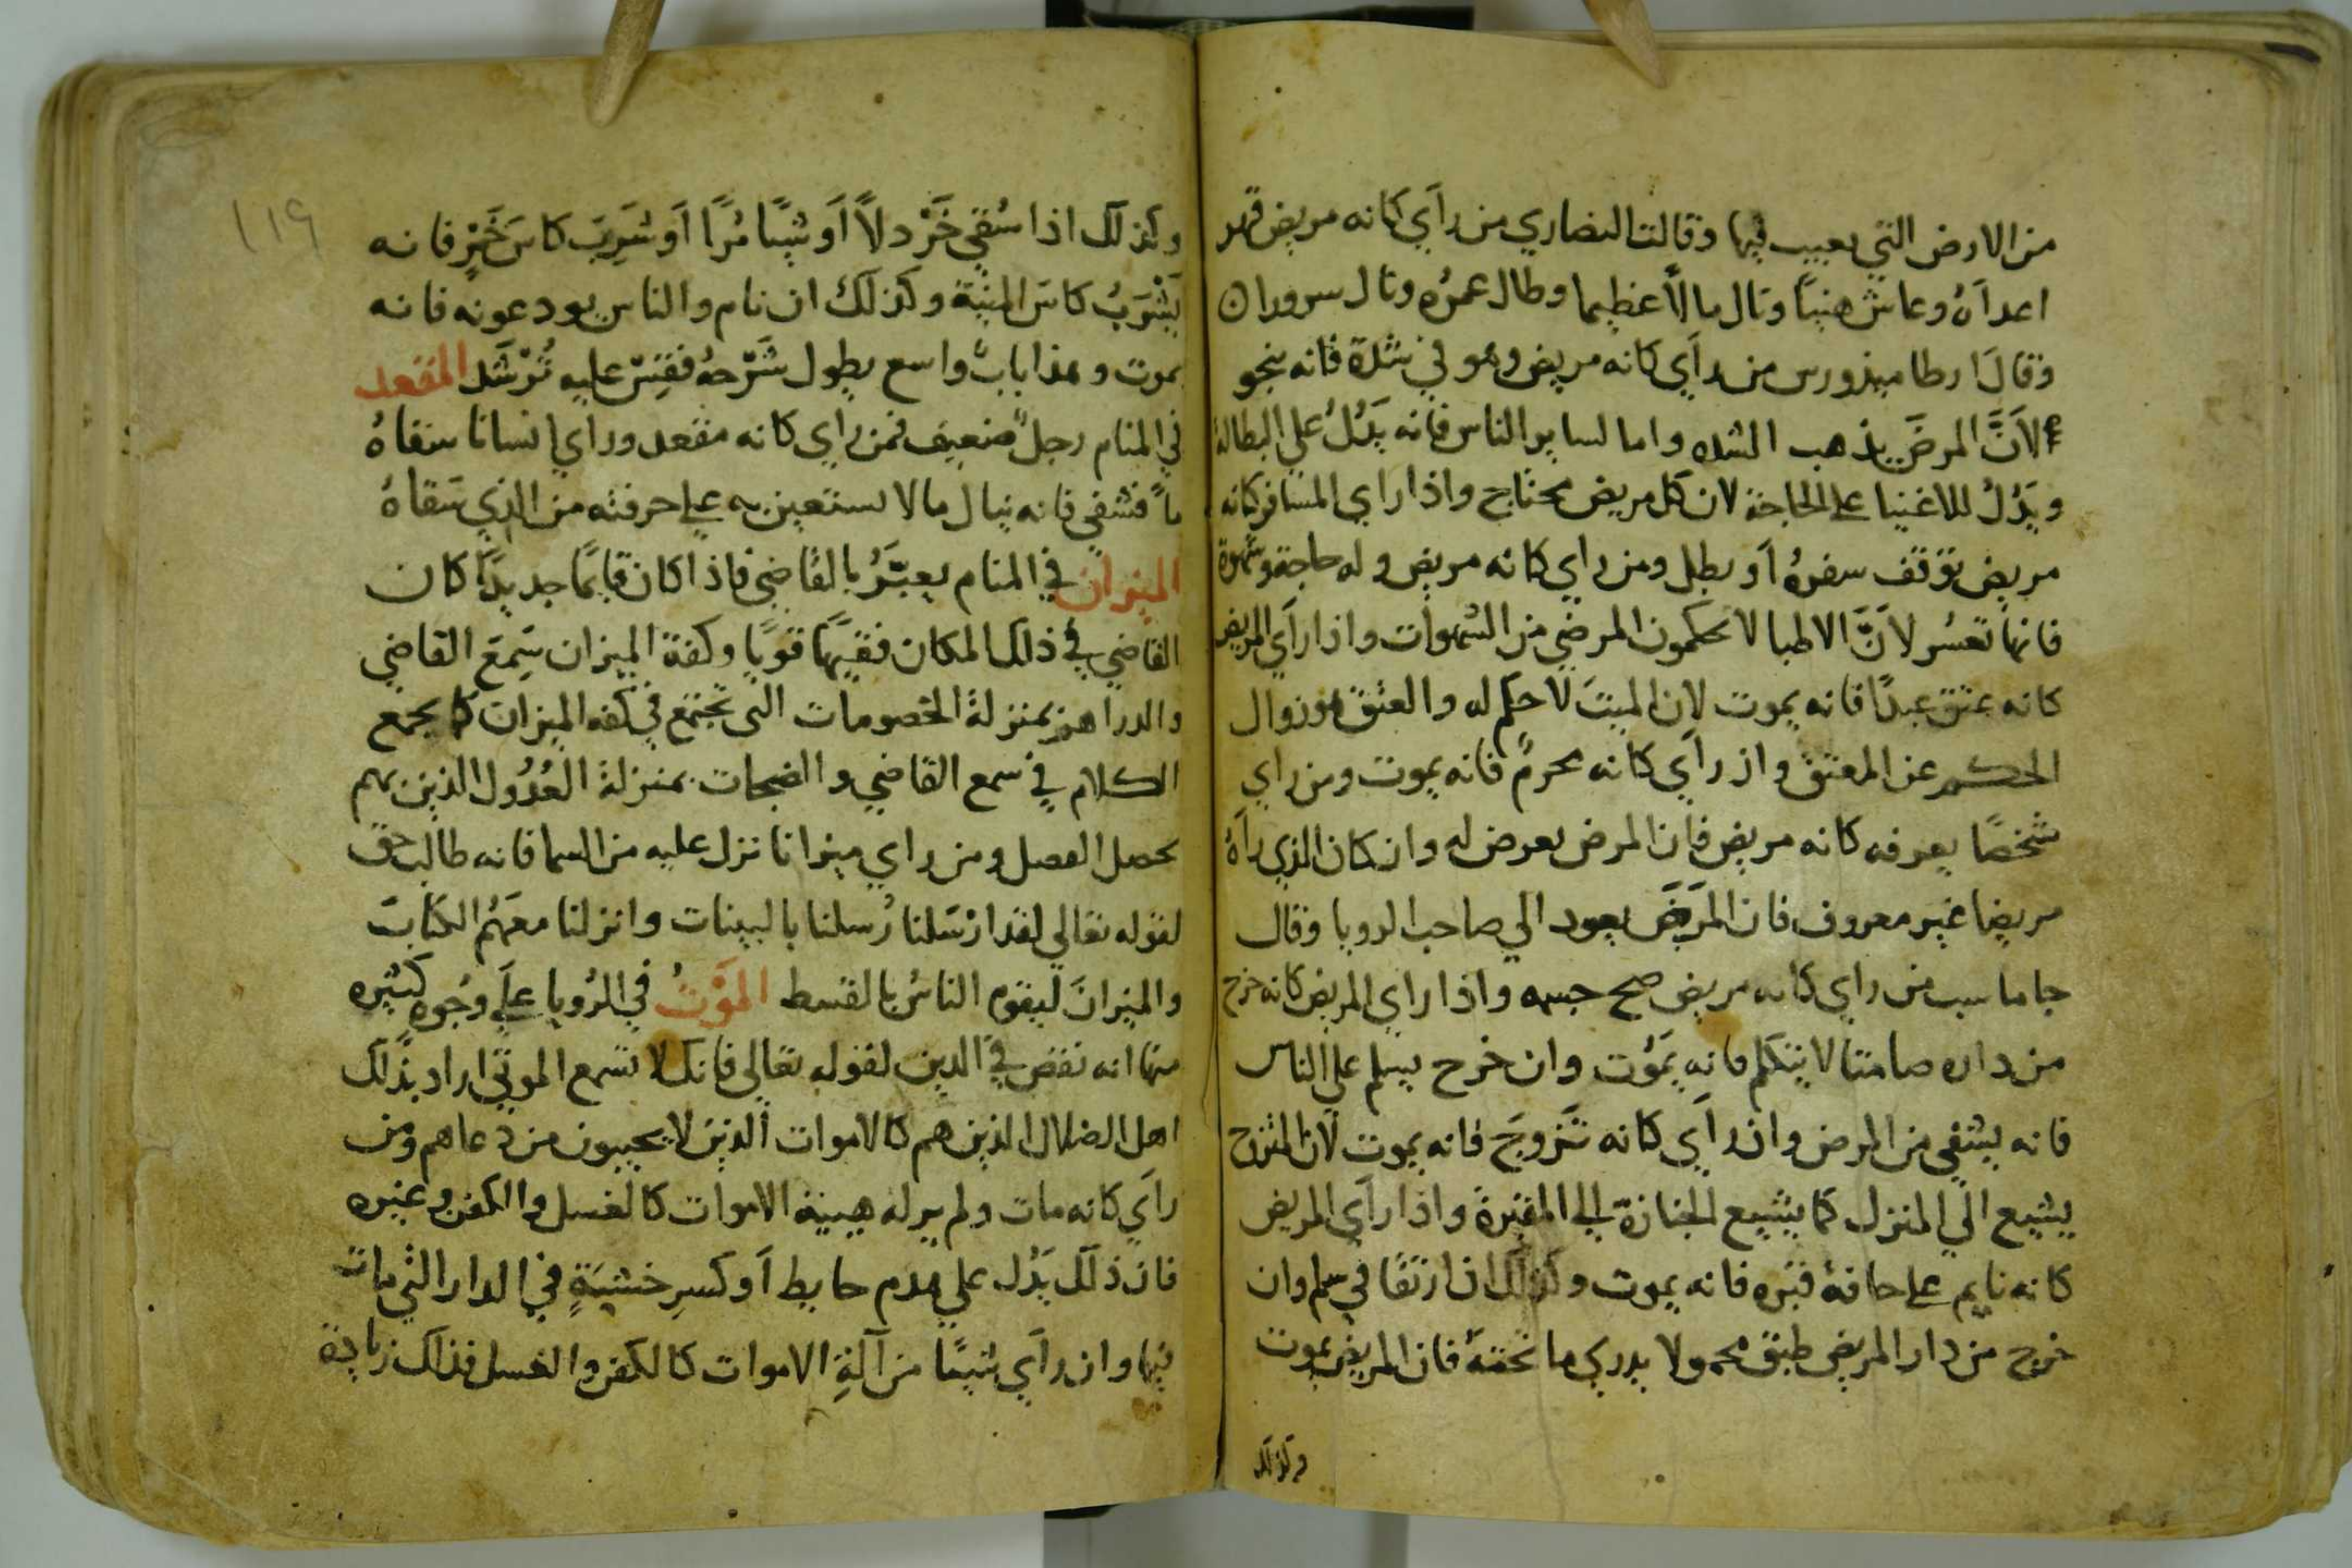 من الارض التي يعيب فيها وقالت النصاري من راي كانه مريض قهر
اعداه وعاش هنيا ونال مالاً عظيما وطال عمره ونال سرورا ن
وقال ارطاميذورس من راي كانه مريض وهو في شدة فانه ينجو
لانَّ المرض يذهب الشده واما لساير الناس فانه يدُلُ علي البطالة
ويَدُلُ للاغنيا علي الحاجة لان كل مريض محتاج واذا راي المسافر كانه
مريض توقف سفرهُ اَو بطل ومن راي كانه مريض وله حاجة وشهوة
فانها تعسُر لاَنَّ الاطبا لا يحكمون المرضي من الشهوات واذا راَي المريض
كانه عتق عبدًا فانه يموت لان الميتَ لا حكم له والعتق هو زوال
الحكم عن المعتق واذ راَي كانه محرمٌ فانه يموت ومن راي
شخصًا يعرفه كانه مريض فان المرض يعرض له وان كان الذي راَهُ
مريضا غير معروف فان المَرضَ يعود الي صاحب الرويا وقال
جاماسب من راي كانه مريض صح جسمه واذا راي المريض كانه خرج
من داره صامتا لا يتكلم فانه يَموُت وان خرج يسلم علي الناس
فانه يشفي من المرض وان راَي كانه تَزوجَ فانه يموت لان المتزوج
يشيع الي المنزل كما يشيع الجنازة الي المقبرة واذا راَي المريض
كانه نايم علي حافة قبره فانه يموت وكذلك ان ارتقا في سلم وان
خرج من دار المريض طبق محمولا يدري ما تحتهُ فان المريض يموت
وكذلك
١١٩
وكذلك اذا سُقي خَرْدلاً اَو شيًا مُرًا اَو شَرِبَ كاسَ خَمْرٍ فانه
يَشْرَبُ كاسَ المنيّة وكذلك ان نام والناس يودعونه فانه
يموت وهذا بابٌ واسع يطول شَرْحهُ فقِسْ عليه تُرْشَد المقعد
في المنام رجلٌ ضعيف فمن راي كانه مقعد وراَي انسانا سقاهُ
ماً فشفي فانه ينال مالا يستعين به علي حرفته من الذي سَقاهُ
الميزان في المنام يعبَّرُ بالقاضي فاذا كان قايمًا جديدًا كان
القاضي في ذلك المكان فقيهًا قويًا وكفة الميزان سَمِعَ القاضي
والدراهم بمنزلة الخصومات التي تجتمع في كفه الميزان كما يجمع
الكلام في سمع القاضي والضجات بمنزلة العُدُول الذين بهم
يحصل الفصل ومن راي ميزانا نزل عليه من السما فانه طالب حق
لقوله تعالي لقد ارْسَلنا رُسلنا بالبينات وانزلنا معهُم الكتابَ
والميزانَ ليقوم الناسُ بالقسط الموْتُ في الرُويا عَلَي وجُوهٍ كثيره
منها انه نقض في الدين لقوله تعالي فانك لا تسمع الموتي اراد بذلك
اهل الضلال الذين هم كالاموات الذين لا يجيبون من دعاهم ومن
راَي كانه مات ولم ير له هيية الاموات كالغسل والكفن وغيره
فان ذلك يَدُل علي هدم حايط اَو كسرِ خشبَةٍ في الدار التي مات
فيها وان راَي شيًا من اَلةِ الاموات كالكفن والغسل فذلك زيادة